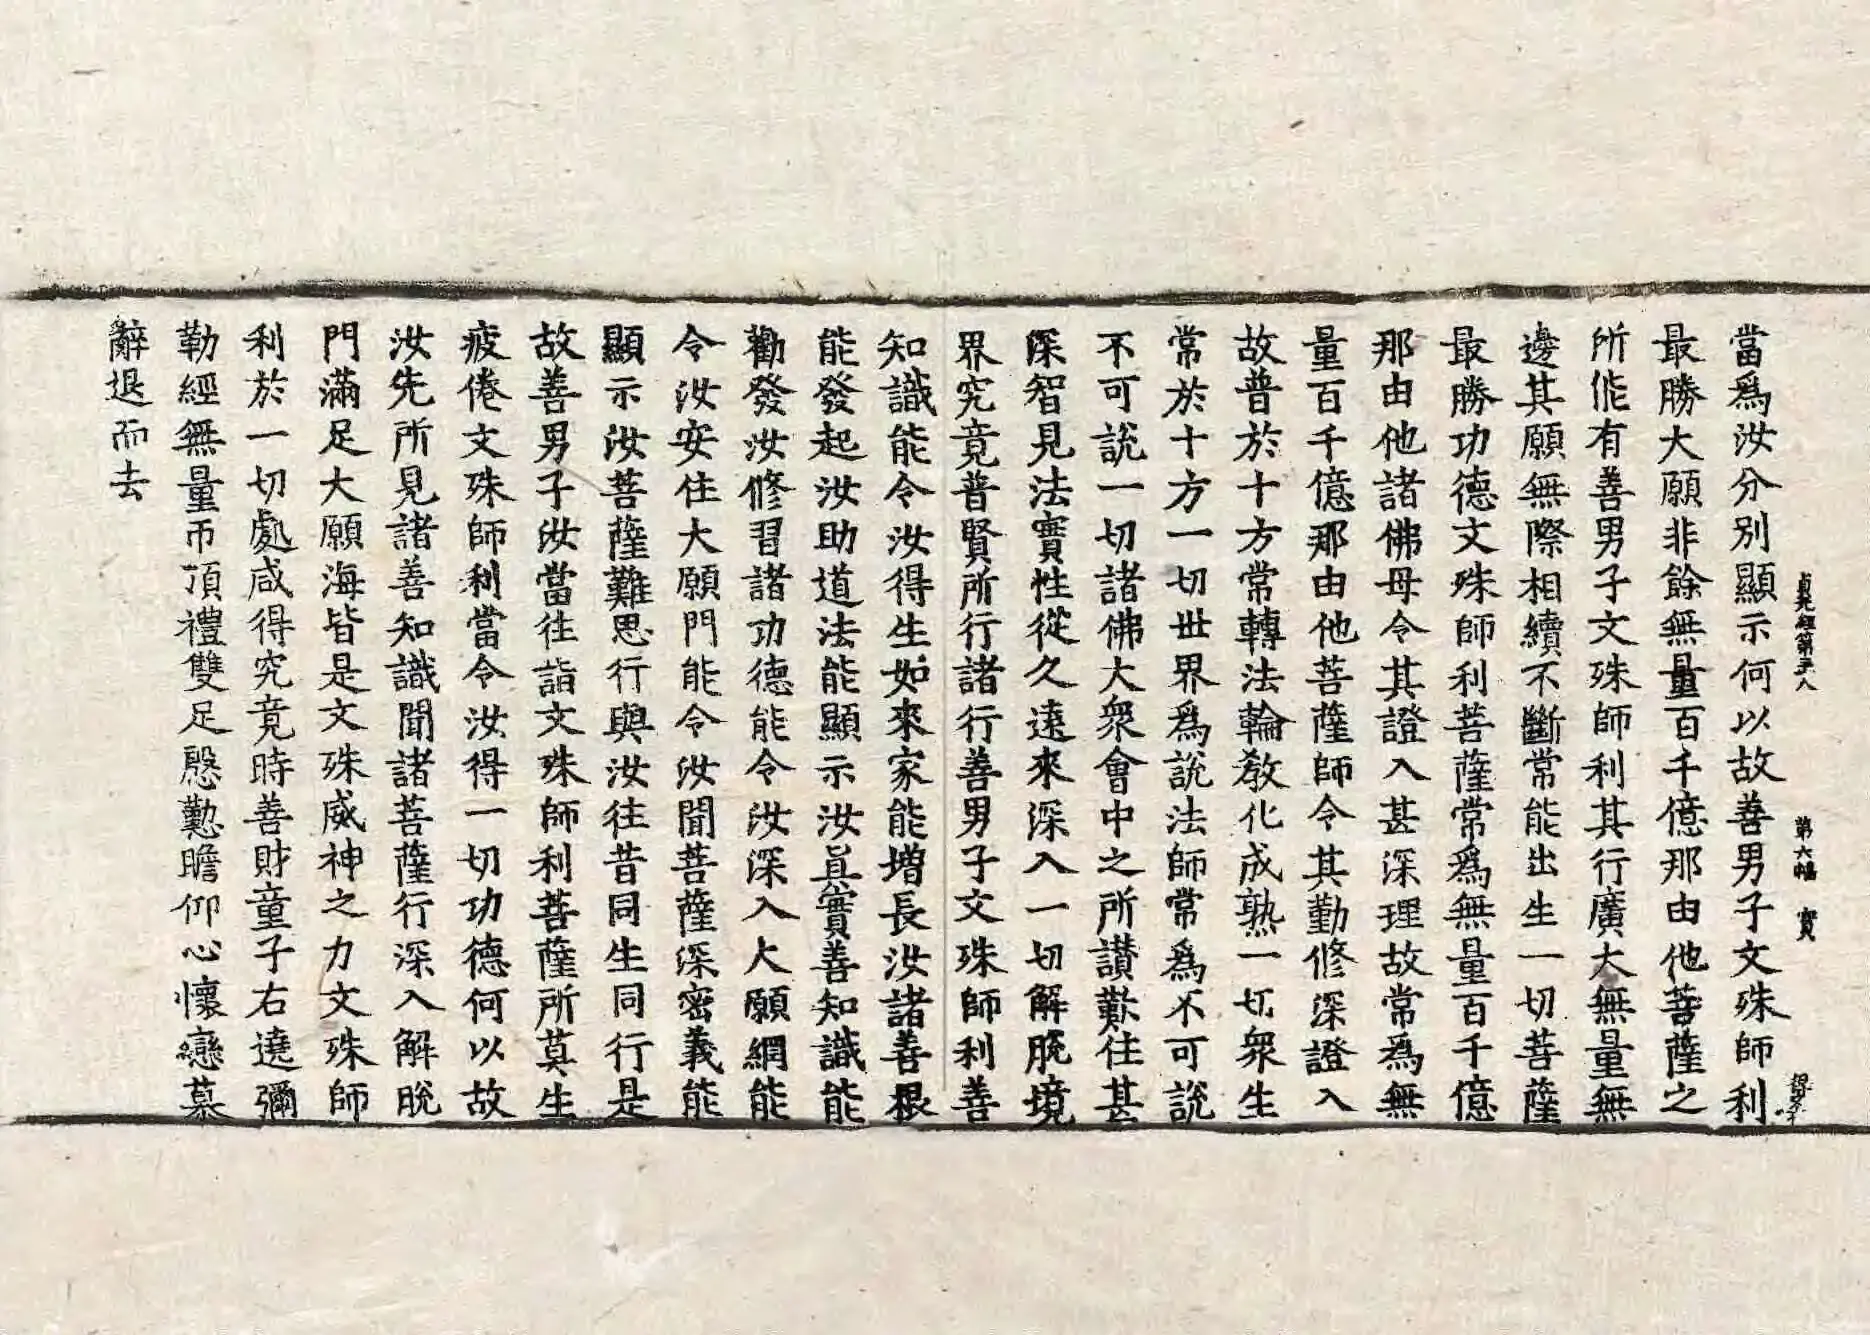 當爲汝分別顯示何以故善男子文殊師利
最勝大願非餘無量百千億那由他菩薩之
所能有善男子文殊師利其行廣大無量無
邊其願無際相續不斷常能出生一切菩薩
最勝功德文殊師利菩薩常爲無量百千億
那由他諸佛母令其證入甚深理故常爲無
量百千億那由他菩薩師令其勤修深證入
故普於十方常轉法輪教化成熟一切衆生
常於十方一切世界爲說法師常爲不可說
不可說一切諸佛大衆會中之所讃歎住甚
深智見法實性從久遠來深入一切解脫境
界究竟普賢所行諸行善男子文殊師利善
知識能令汝得生如來家能增長汝諸善根
能發起汝助道法能顯示汝眞實善知識能
勸發汝修習諸功德能令汝深入大願網能
令汝安住大願門能令汝聞菩薩深密義能
顯示汝菩薩難思行與汝往昔同生同行是
故善男子汝當往詣文殊師利菩薩所莫生
疲倦文殊師利當令汝得一切功德何以故
汝先所見諸善知識聞諸菩薩行深入解脫
門滿足大願海皆是文殊威神之力文殊師
利於一切處咸得究竟時善財童子右遶彌
勒經無量帀頂禮雙足慇懃瞻仰心懷戀慕
辭退而去
貞元經第 八 第六幅 實